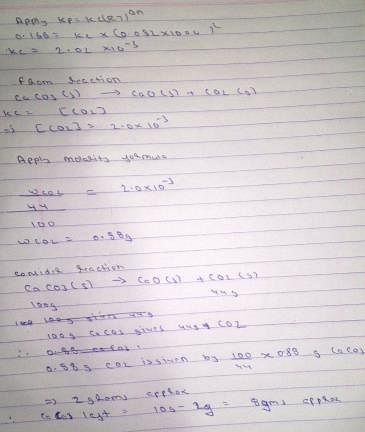 Apply Kp = Kc(RT)^Δn
0.160 = Kc × (0.082×1000)^1
Kc = 2.02 × 10^-3
From reaction
CaCO3(s) → CaO(s) + CO2(g)
Kc = [CO2]
=> [CO2] = 2.0×10^-3
Apply molarity formula
WCO2 = 2.0×10^-3
44
100
WCO2 = 0.88g
Consider reaction
CaCO3(s) → CaO(s) + CO2(g)
100g 44g
100g gives 44g
100g CaCO3 gives 44g CO2
∴ 0.88
0.88g CO2 is given by 100/44 × 0.88 g CaCO3
=> 2 grams approx
∴ CaCO3 left = 10g - 2g = 8gms approx